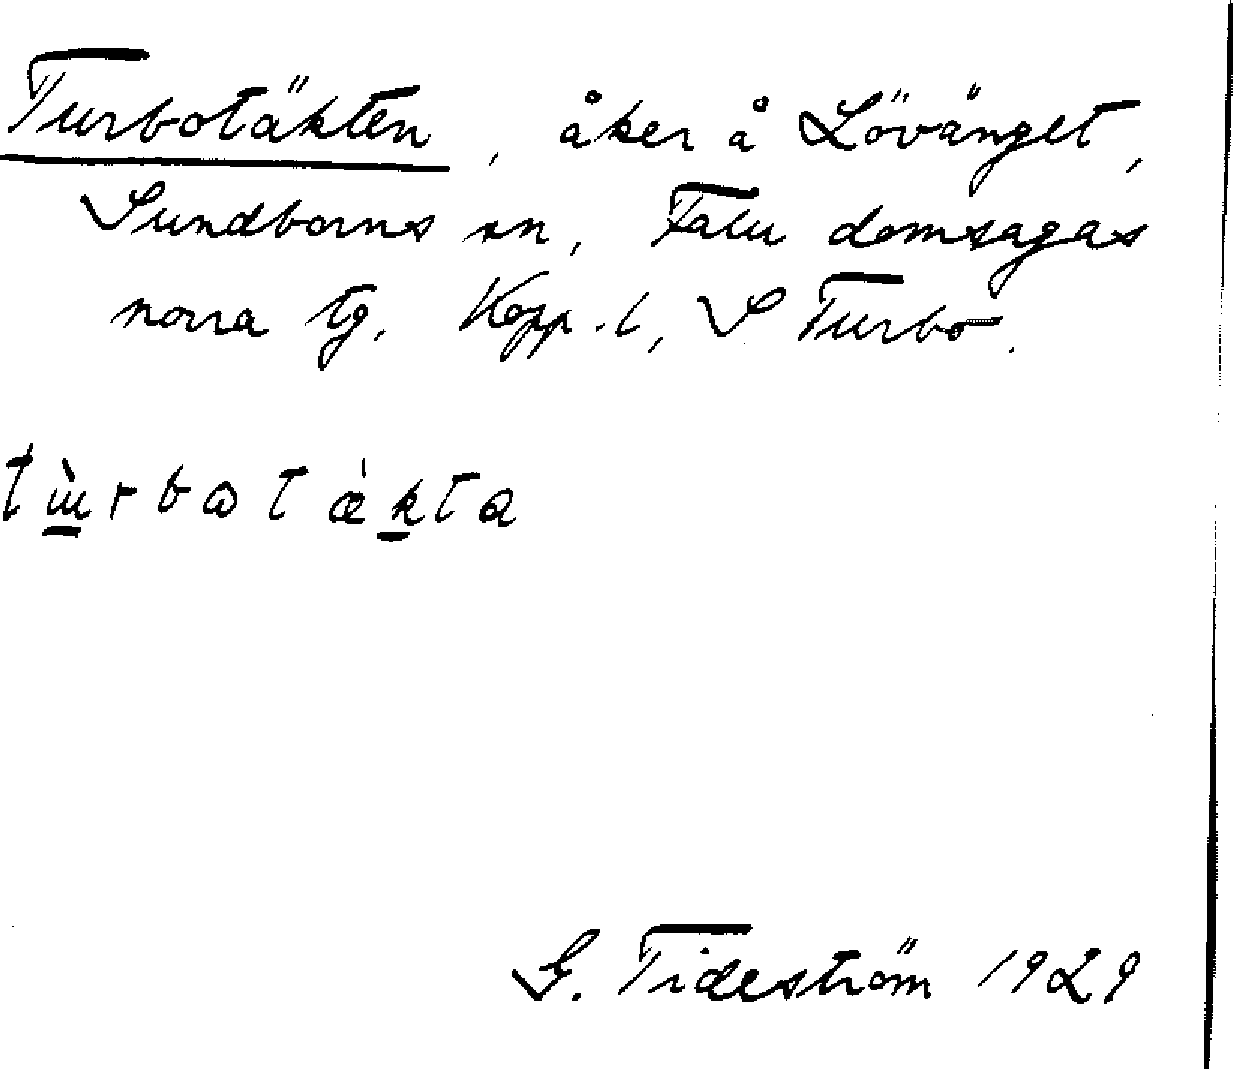 Turbotäkten, åker å Lövänget,
Sundborns sn, Falu domsagas
norra tg. Kopp. l, S Turbo.
tùrbωtǽkta
G. Tideström 1929